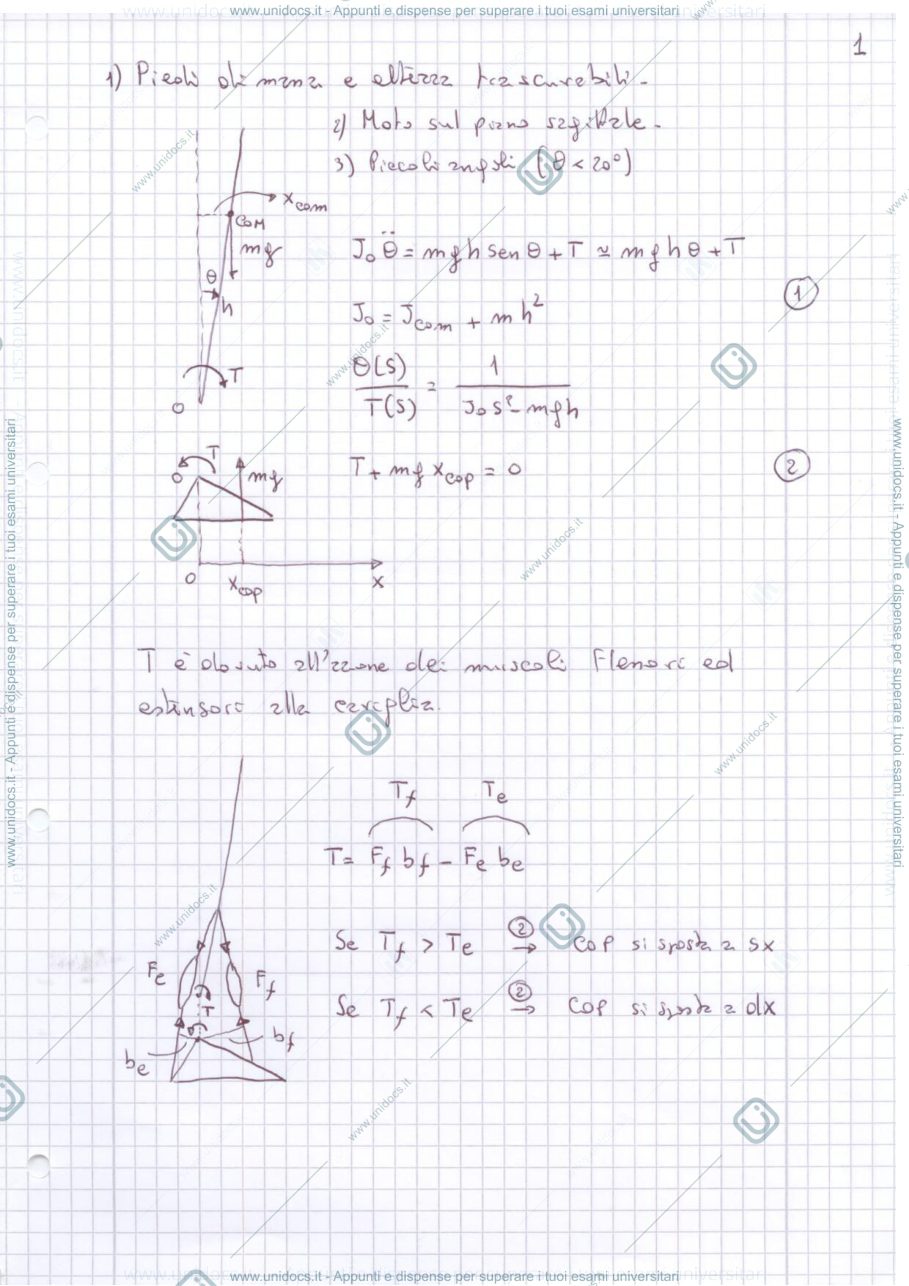 www.unidocs.it - Appunti e dispense per superare i tuoi esami universitari
1
1) Piedi di massa e altezza trascurabili.
2) Moto sul piano sagittale.
3) Piccoli angoli (θ < 20°)
x_com
COM
mg
θ
h
T
O
J₀ θ̈ = mgh sen θ + T ≃ mghθ + T
①
J₀ = J_com + mh²
θ(s)/T(s) = 1/(J₀s² - mgh)
T
O
mg
T + mg x_cop = 0
②
O
x_cop
x
T è dovuto all'azione dei muscoli flessori ed
estensori alla caviglia.
T_f T_e
T = F_f b_f - F_e b_e
Se T_f > T_e ② → COP si sposta a sx
Se T_f < T_e ② → COP si sposta a dx
F_e
F_f
T
b_e
b_f
www.unidocs.it - Appunti e dispense per superare i tuoi esami universitari
www.unidocs.it - Appunti e dispense per superare i tuoi esami universitari
www.unidocs.it - Appunti e dispense per superare i tuoi esami universitari
www.unidocs.it
www.unidocs.it
www.unidocs.it
www.unidocs.it
www.unidocs.it
www.unidocs.it